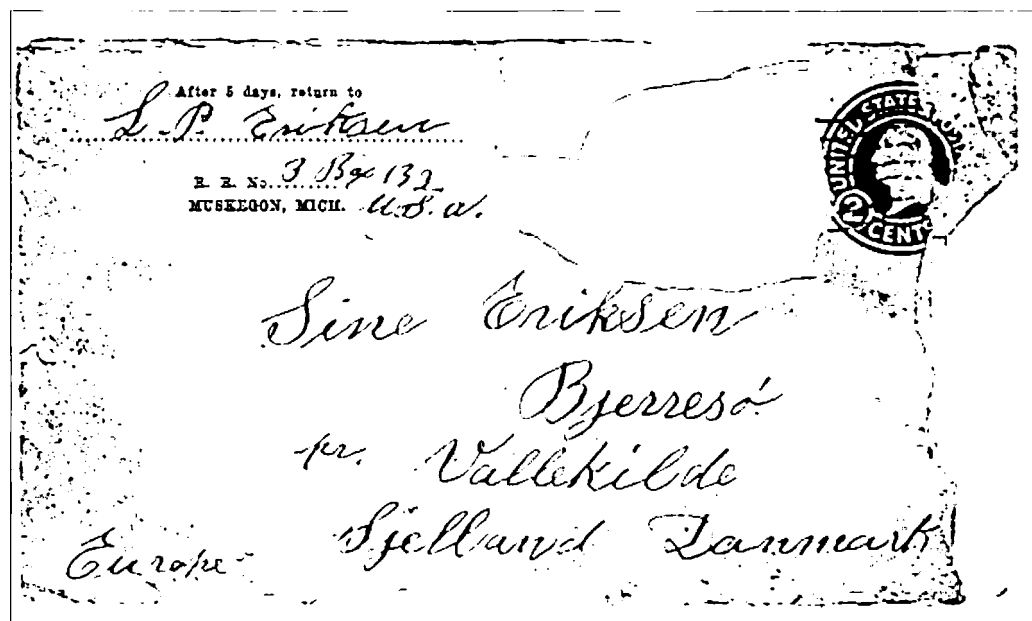 After 5 days, return to
L. P. Eriksen
R. R. No. 3 Box 132
MUSKEGON, MICH. U.S.a.
UNITED STATES
2 CENTS
Sine Eriksen
Bjerresö
pr. Vallekilde
Sjelland Danmark
Europe